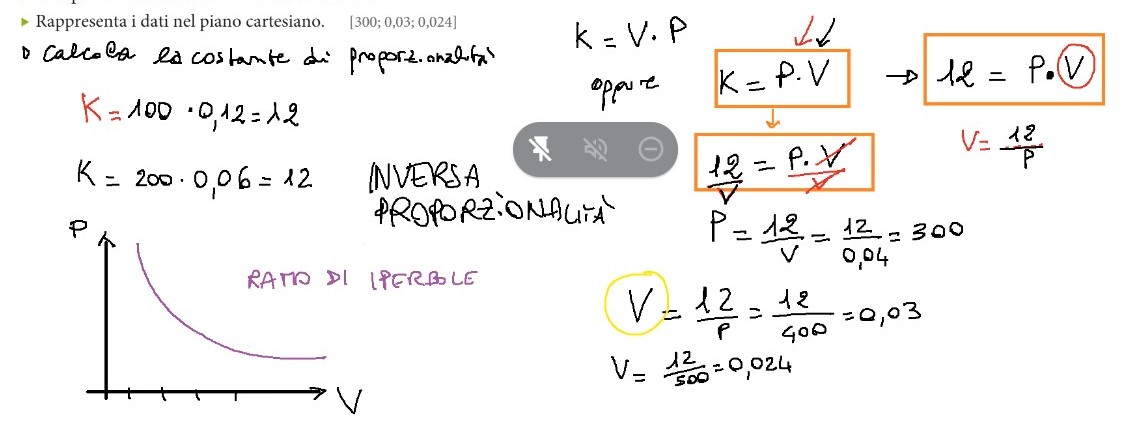 ▸ Rappresenta i dati nel piano cartesiano. [300; 0,03; 0,024]
Calcola la costante di proporzionalità
K = 100 · 0,12 = 12
K = 200 · 0,06 = 12
INVERSA
PROPORZIONALITÀ
P
RAMO DI IPERBOLE
V
K = V · P
oppure
K = P · V
→ 12 = P · V
V = 12/P
12/V = P · V/V
P = 12/V = 12/0,04 = 300
V = 12/P = 12/400 = 0,03
V = 12/500 = 0,024